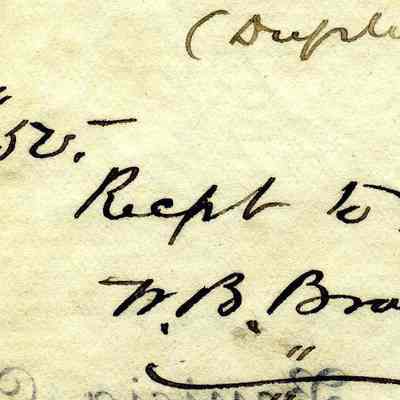 (Dupli
52.
Recpt to
W. B. Bra
"